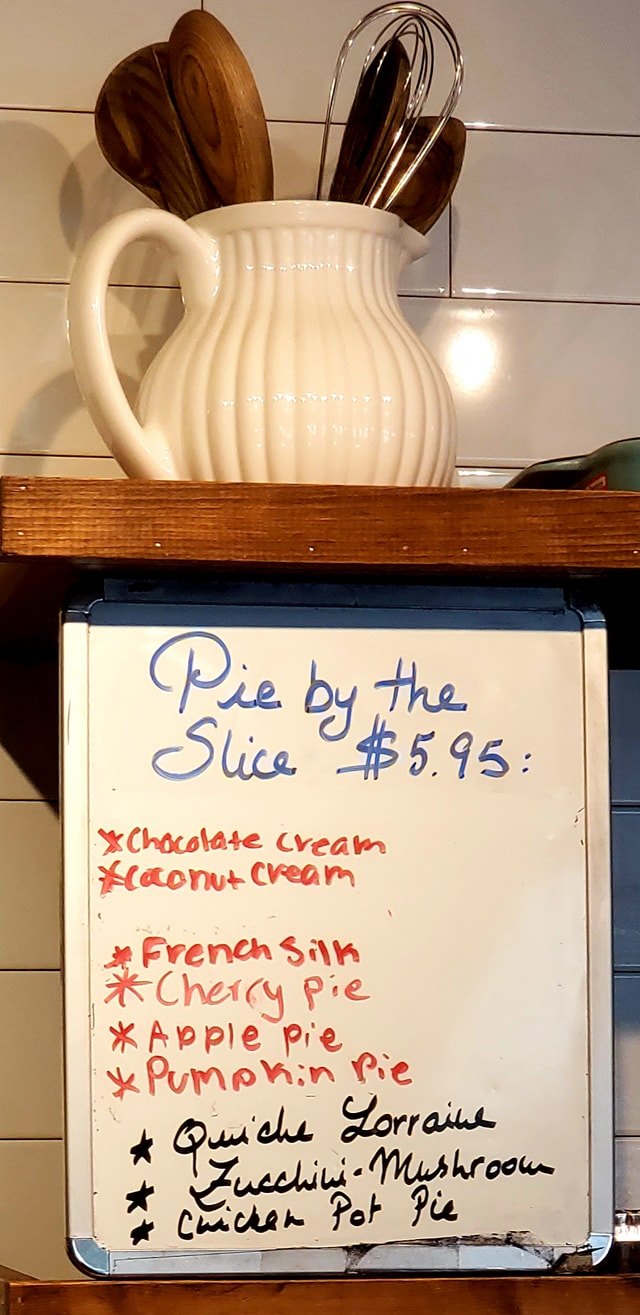 Pie by the
Slice $5.95:
*Chocolate Cream
*Coconut Cream
*French Silk
*Cherry pie
*Apple pie
*Pumpkin Pie
★ Quiche Lorraine
★ Zucchini-Mushroom
★ Chicken Pot Pie